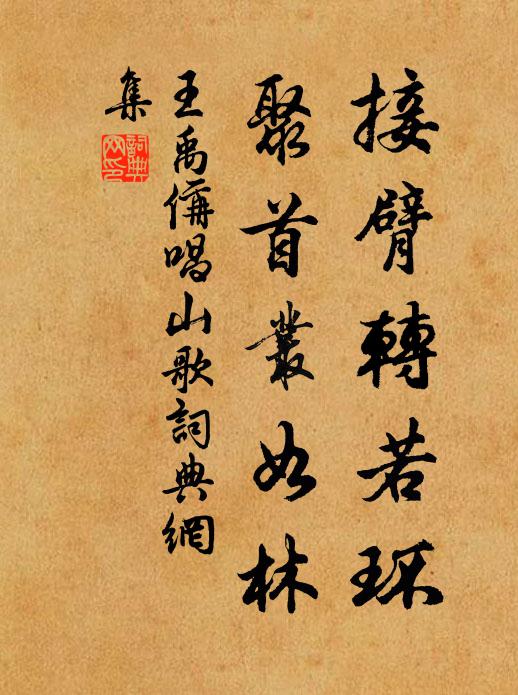 接臂轉若環
聚首叢如林
王禹偁唱山歌詞典網
集
詞典網印